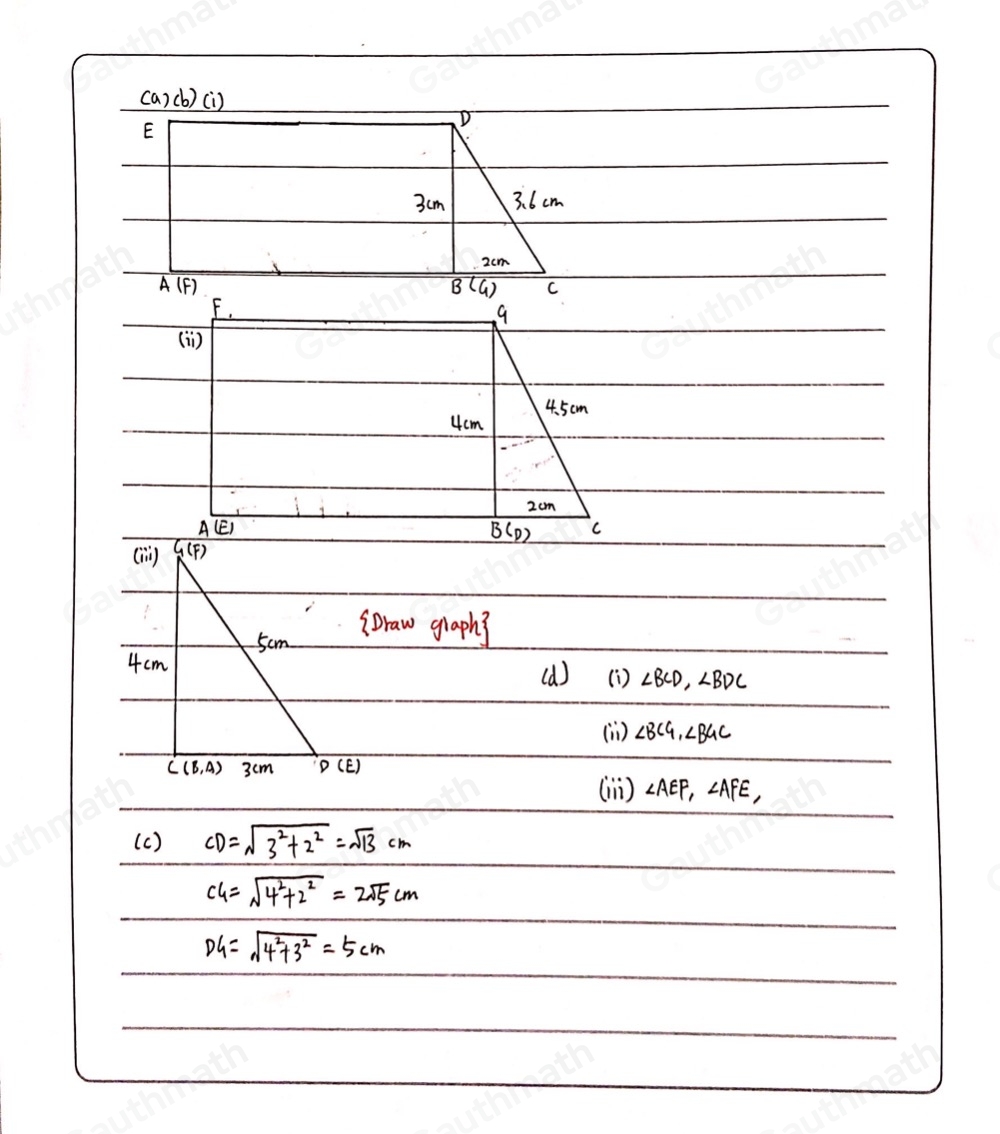 (a)(b)(i)
E
D
3cm
3.6 cm
2cm
A (F)
B (G)
C
F
G
(ii)
4cm
4.5cm
2cm
A (E)
B(D)
C
(iii)
G(F)
5cm
{Draw graph}
4cm
C (B,A)
3cm
D (E)
(d) (i) ∠BCD, ∠BDC
(ii) ∠BCG, ∠BGC
(iii) ∠AEF, ∠AFE,
(c) CD=√3²+2² = √13 cm
CG= √4²+2² = 2√5 cm
DG= √4²+3² = 5cm
Gauthmath